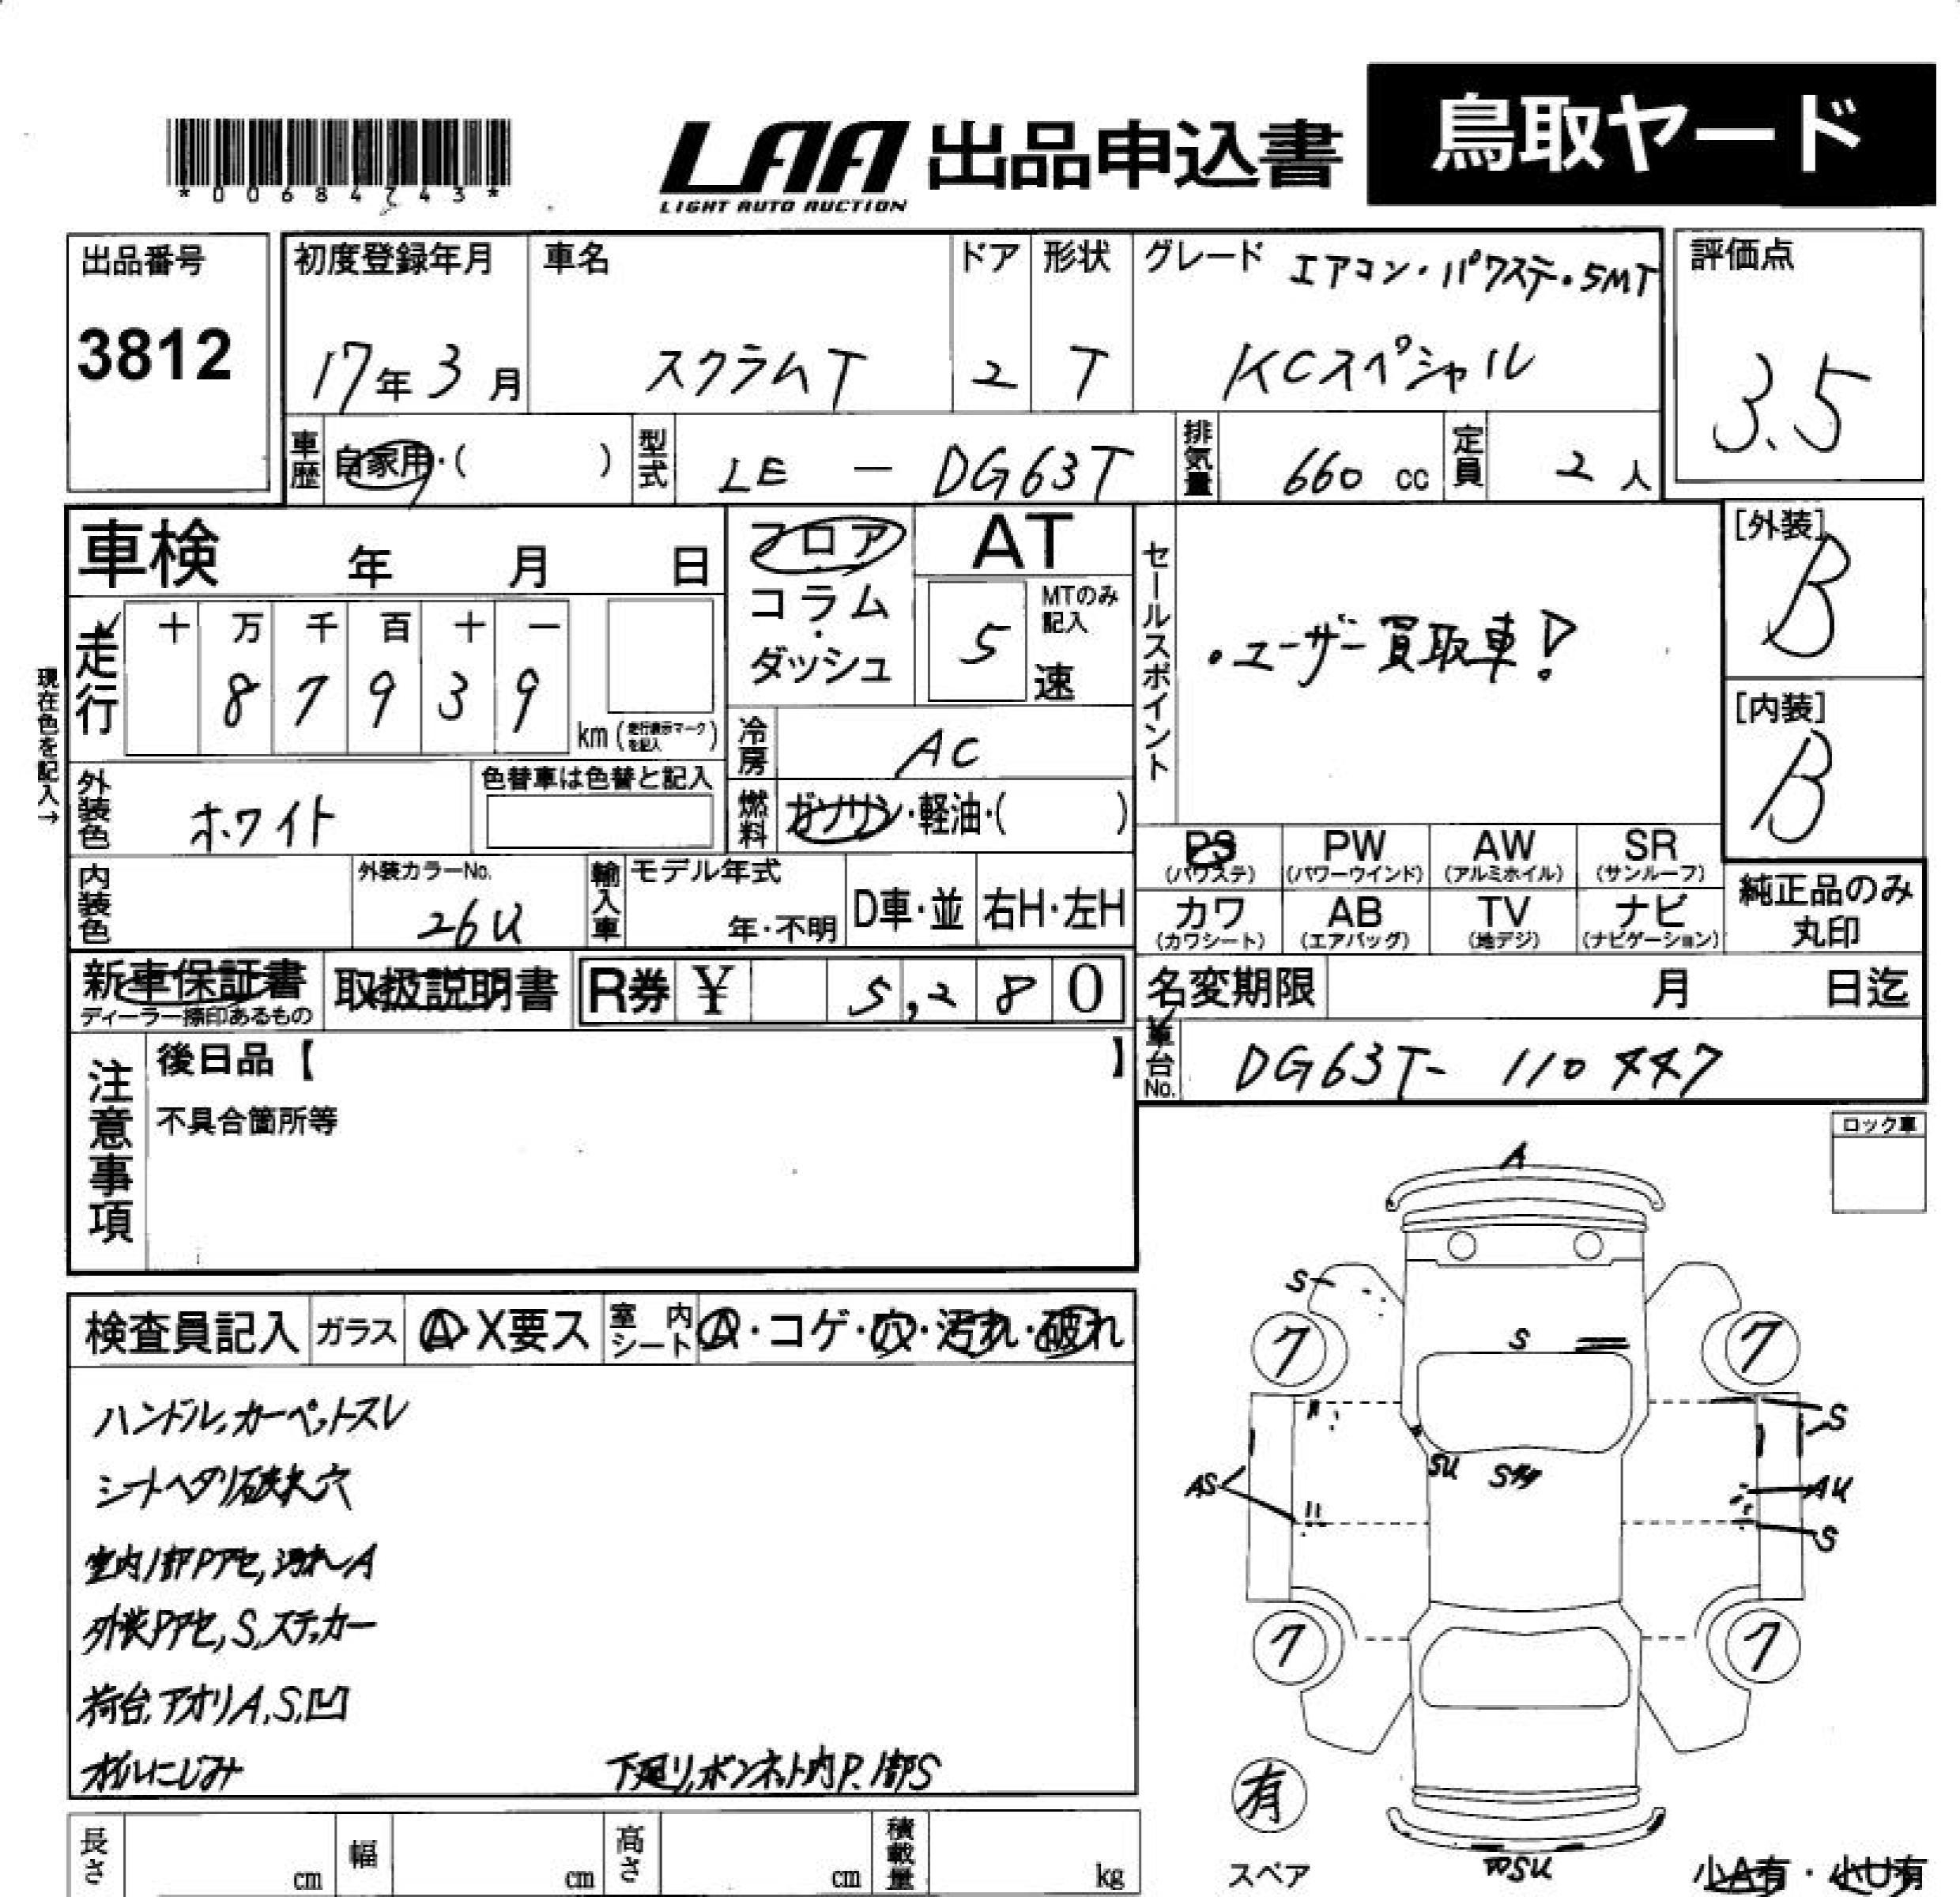 *00684743*
LAA 出品申込書 鳥取ヤード
LIGHT AUTO AUCTION
出品番号 初度登録年月 車名 ドア 形状 グレード エアコン・パワステ・5MT 評価点
3812 17年3月 スクラムT 2 T KCスペシャル 3.5
車歴 自家用・( ) 型式 LE - DG63T 排気量 660 cc 定員 2人
車検 年 月 日 フロア・コラム・ダッシュ AT セールスポイント [外装] B
走行 十 万 千 百 十 一 5速 MTのみ記入
8 7 9 3 9 km (走行表示マークを記入) ・ユーザー買取車! [内装] B
現在色を記入→
冷房 AC
外装色 ホワイト 色替車は色替と記入 燃料 ガソリン・軽油・( )
PS (パワステ) PW (パワーウインド) AW (アルミホイル) SR (サンルーフ)
内装色 外装カラーNo. 26U 輸入車 モデル年式 年・不明 D車・並 右H・左H
カワ (カワシート) AB (エアバッグ) TV (地デジ) ナビ (ナビゲーション) 純正品のみ丸印
新車保証書 取扱説明書 R券 ¥ 5,280 名変期限 月 日迄
ディーラー捺印あるもの
車台No. DG63T- 110447
注意事項 後日品【 】
不具合箇所等
ロック車
検査員記入 ガラス A・X要ス 室内シート A・コゲ・穴・汚れ・破れ
ハンドル,カーペットスレ
シートヘタリ破れ穴
室内1部Pアセ,汚れA
外装Pアセ,S,ステッカー
荷台,アオリA,S,凹
オイルにじみ 下廻り,ボンネット内P.1部S
A
S
ワ S ワ
S
SU S
AS AU
S
ワ ワ
有
スペア
SU
小A有・小U有
長さ cm 幅 cm 高さ cm 積載量 kg